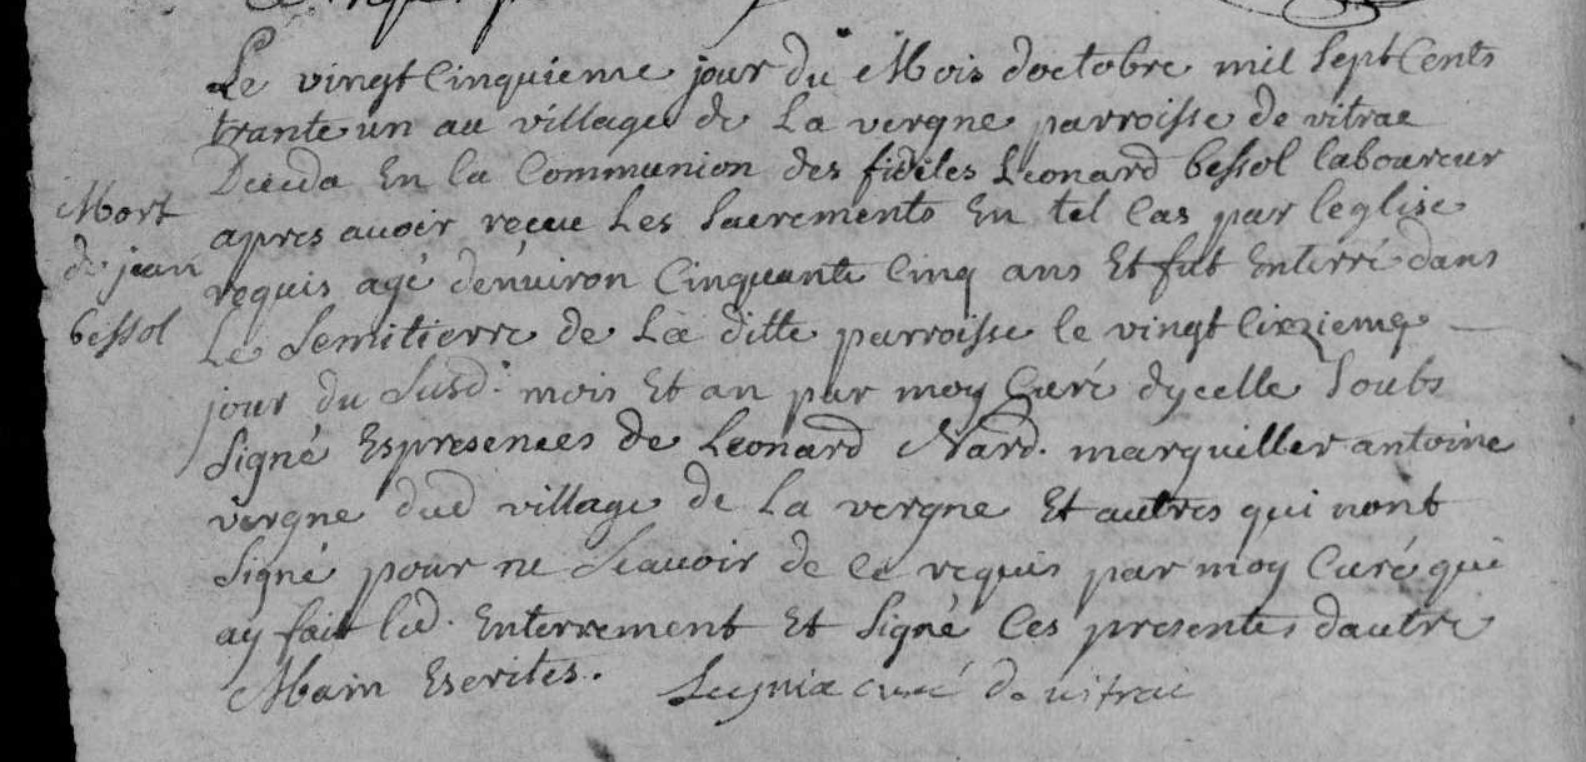 Le vingt cinquieme jour du Mois doctobre mil sept Cents
trante un au village de La vergne parroisse de vitrac
Deceda En la Communion des fideles Leonard bessol laboureur
Mort
apres avoir reçeue Les Sacrements En tel Cas par leglise
de jean
requis agé dénuiron Cinquante Cinq ans Et fut Enterré dans
bessol
Le Semitierre de La ditte parroisse le vingt Cixzieme
jour du Susd. mois Et an par moy Curé dycelle Soubs
Signé Espresences de Leonard Nard. marquiller antoine
vergne dud village de La vergne Et autres qui nont
Signé pour ne Scauoir de Ce requis par moy Curé qui
ay fait led. Enterrement Et Signé Ces presentes dautre
Main Escrites. curé de vitrac